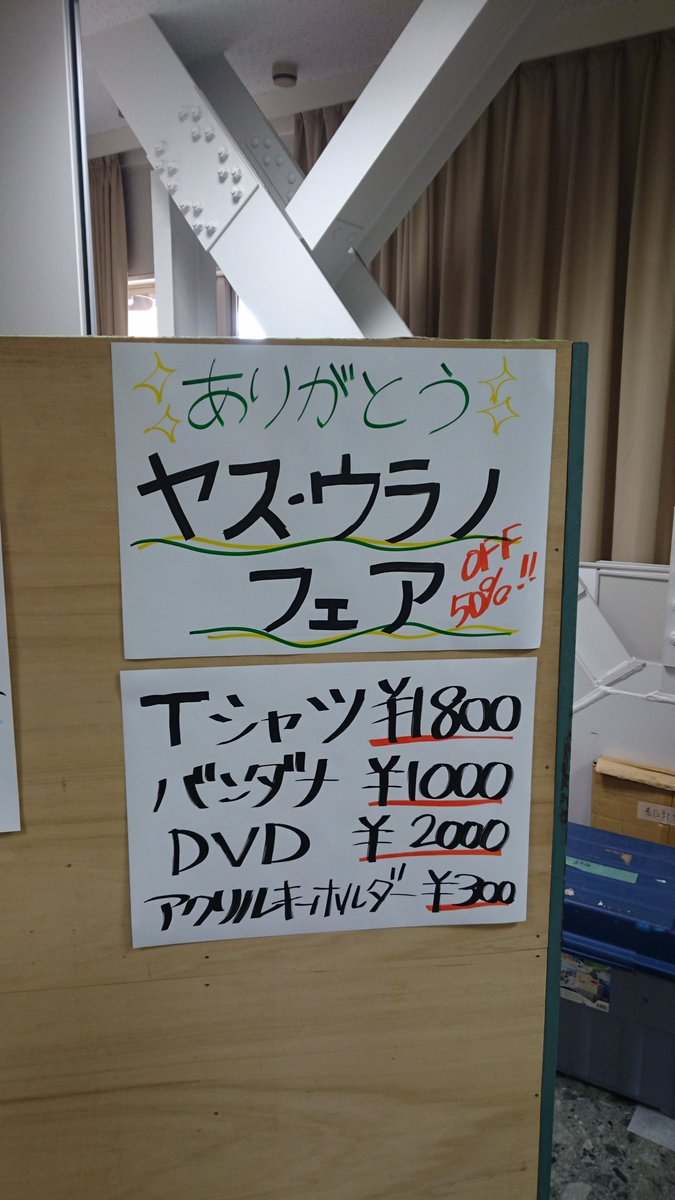 ありがとう
ヤス・ウラノ
フェア
OFF
50%!!
Tシャツ ¥1800
バンダナ ¥1000
DVD ¥2000
アクリルキーホルダー ¥300